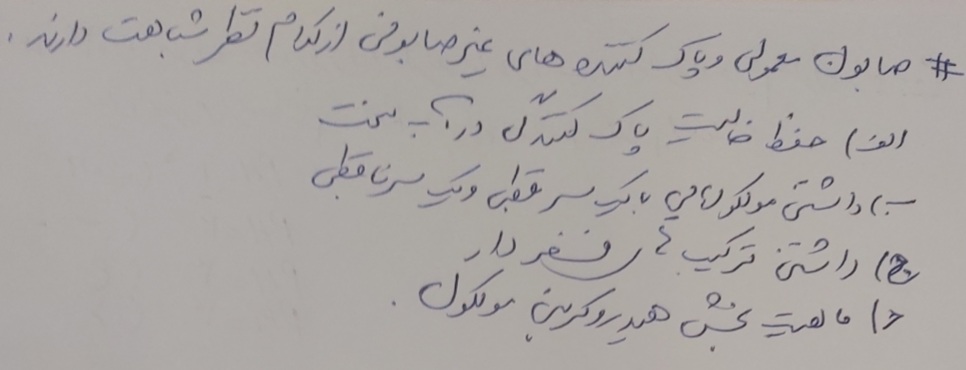 # صابون معمولی و پاک کننده های غیرصابونی از کدام نظر شباهت دارند.
الف) حفظ خاصیت پاک کنندگی در آب سخت
ب) داشتن مولکول هایی با یک سر قطبی و یک سر ناقطبی
ج) داشتن ترکیب های فسفر دار
د) ماهیت بخش هیدروکربنی مولکول.